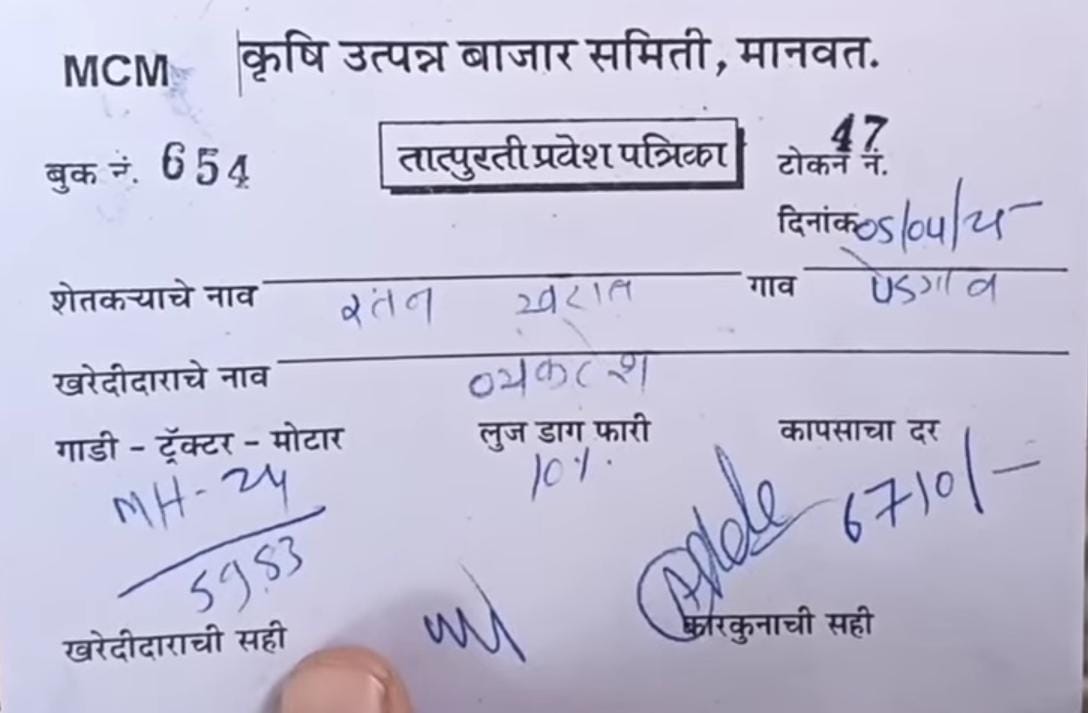 MCM कृषि उत्पन्न बाजार समिती, मानवत.
बुक नं. 654 तात्पुरती प्रवेश पत्रिका टोकन नं. 47
दिनांक 05/04/25
शेतकऱ्याचे नाव रतन खरात गाव पेडगाव
खरेदीदाराचे नाव व्यकटेश
गाडी - ट्रॅक्टर - मोटार लुज डाग फारी कापसाचा दर
MH-24 10%. 6710/-
5983
खरेदीदाराची सही कारकुनाची सही